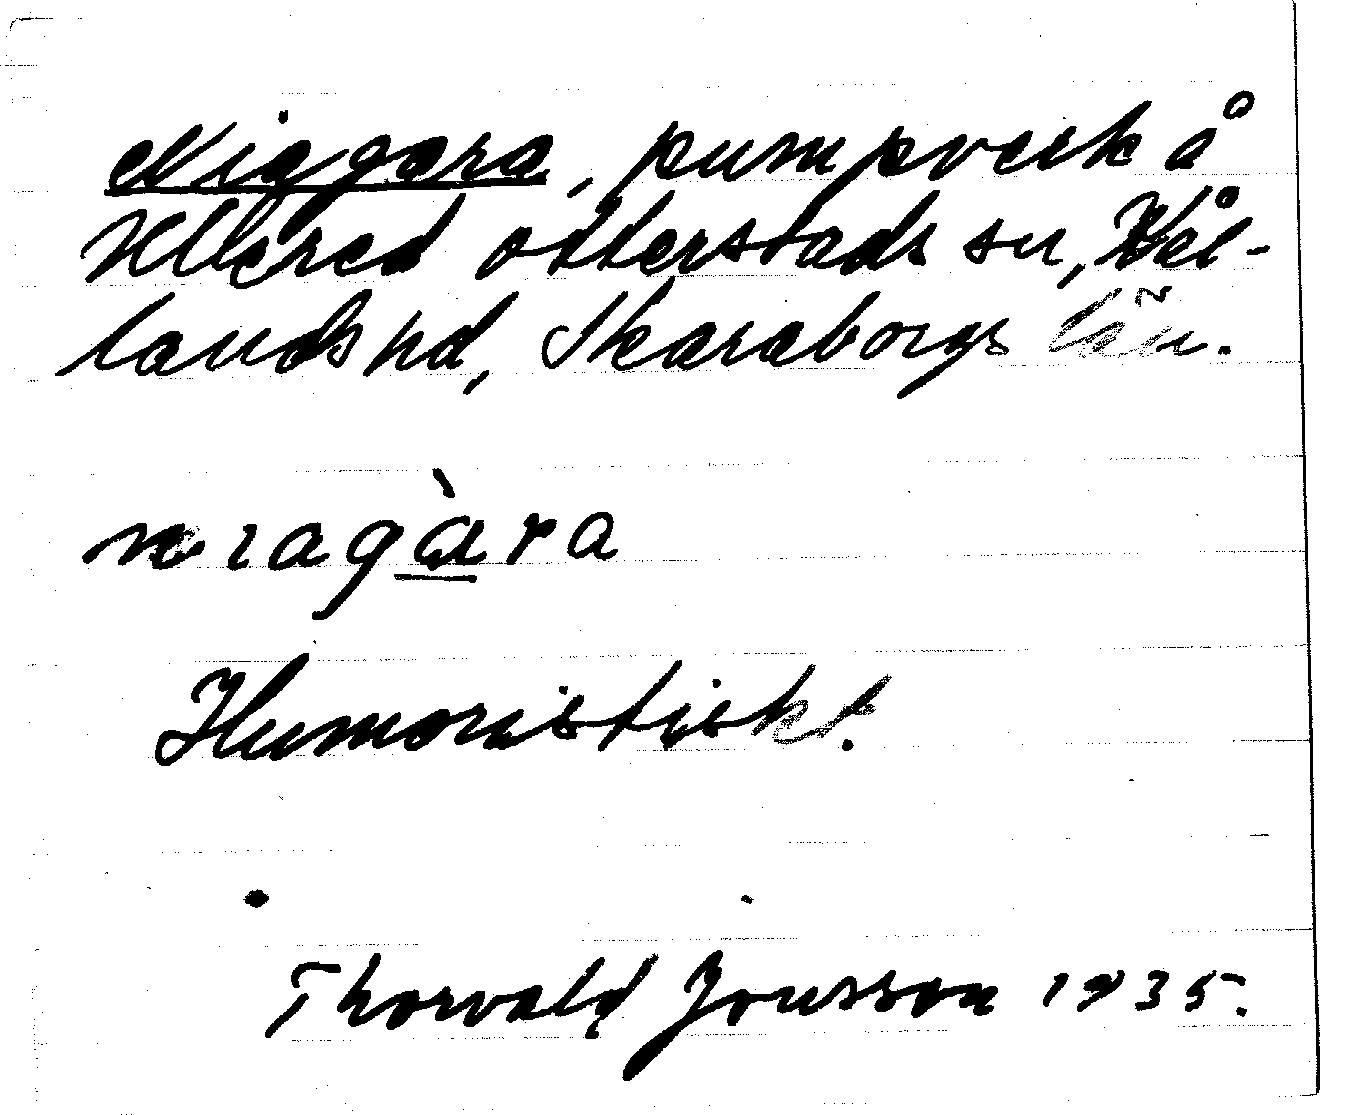 Niagara, pumpverk å
Ullered Otterstads sn, Kål-
lands hd, Skaraborgs län.
niagàra
Humoristiskt.
Thorvald Jonsson 1935.